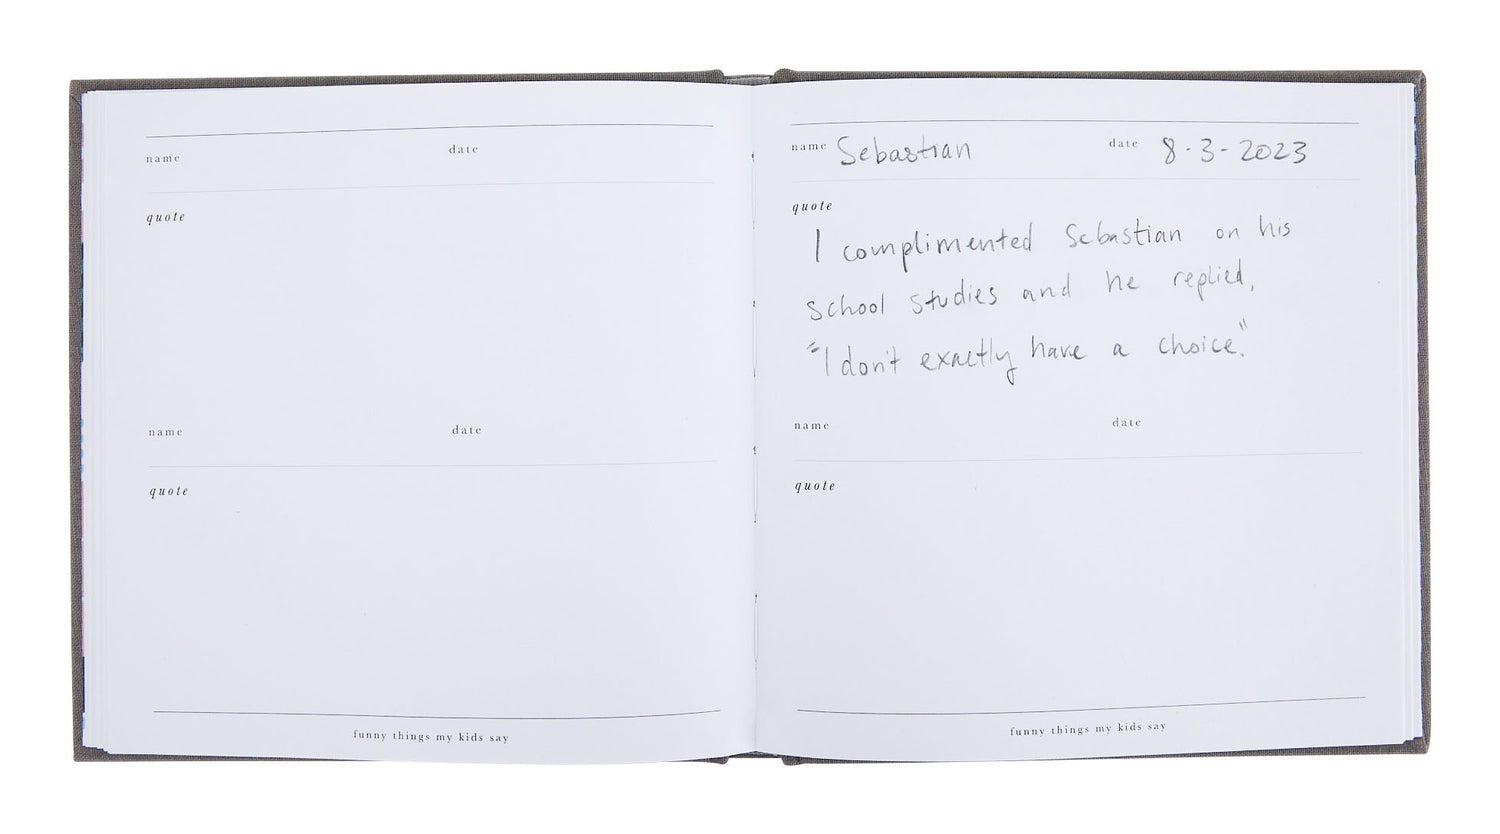 name date
quote
name date
quote
funny things my kids say
name Sebastian date 8-3-2023
quote
I complimented Sebastian on his
school studies and he replied,
"I don't exactly have a choice."
name date
quote
funny things my kids say